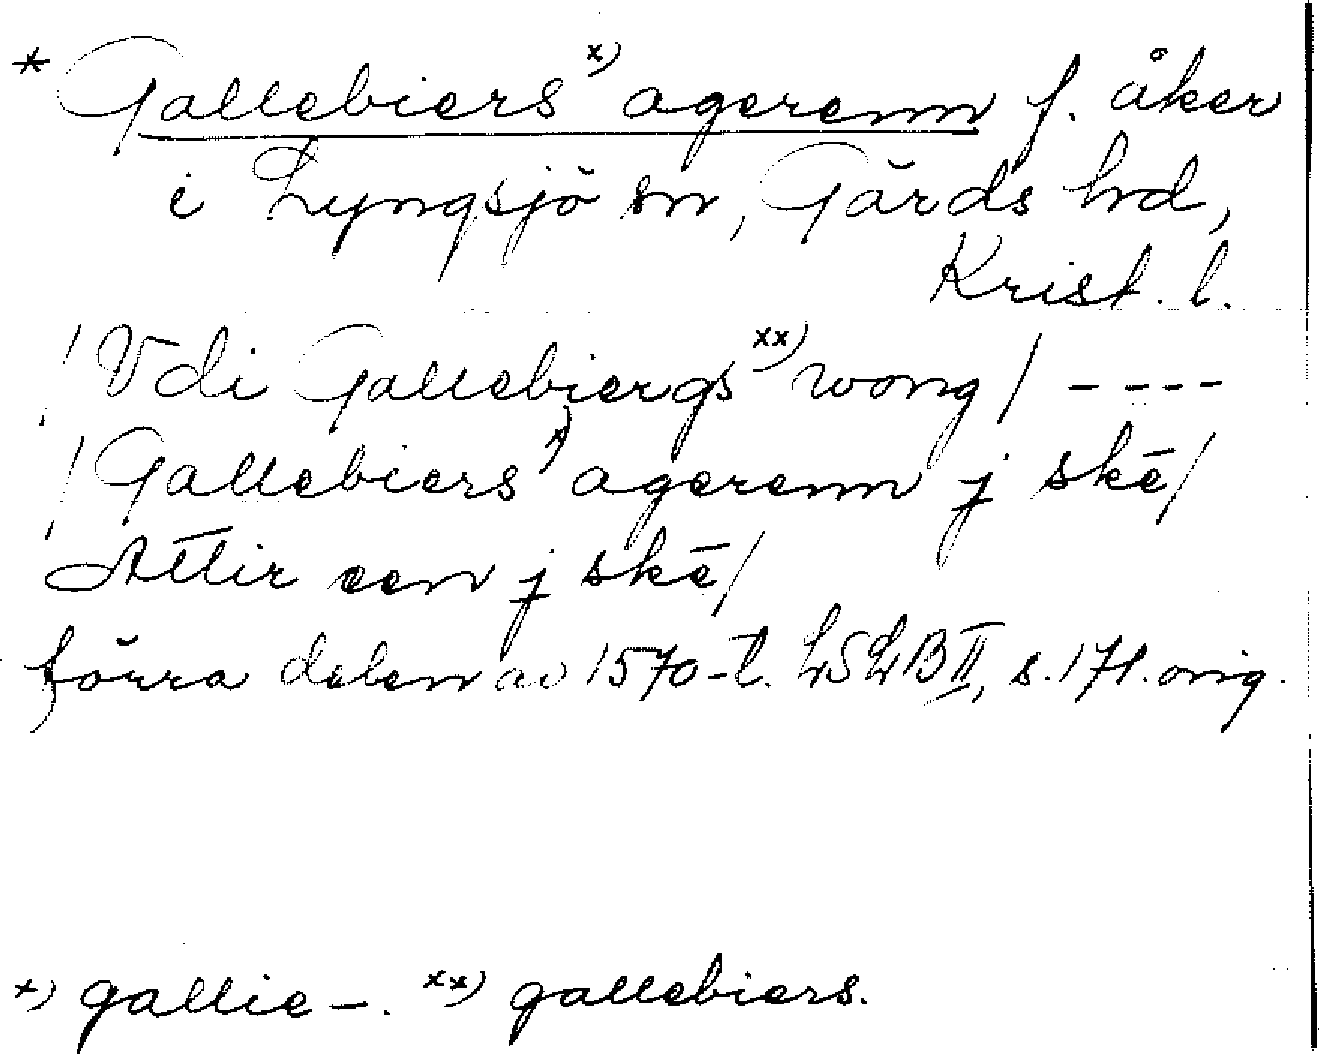 * Gallebiers x) agerenn f. åker
i Lyngsjö sn, Gärds hd,
Krist. l.
/ Vdi Gallebiergs xx) wong / ----
/ Gallebiers x) agerenn j skē/
Attir een j skē/
förra delen av 1570-t. LSLB II, s. 171. orig.
x) gallie-. xx) gallebiers.